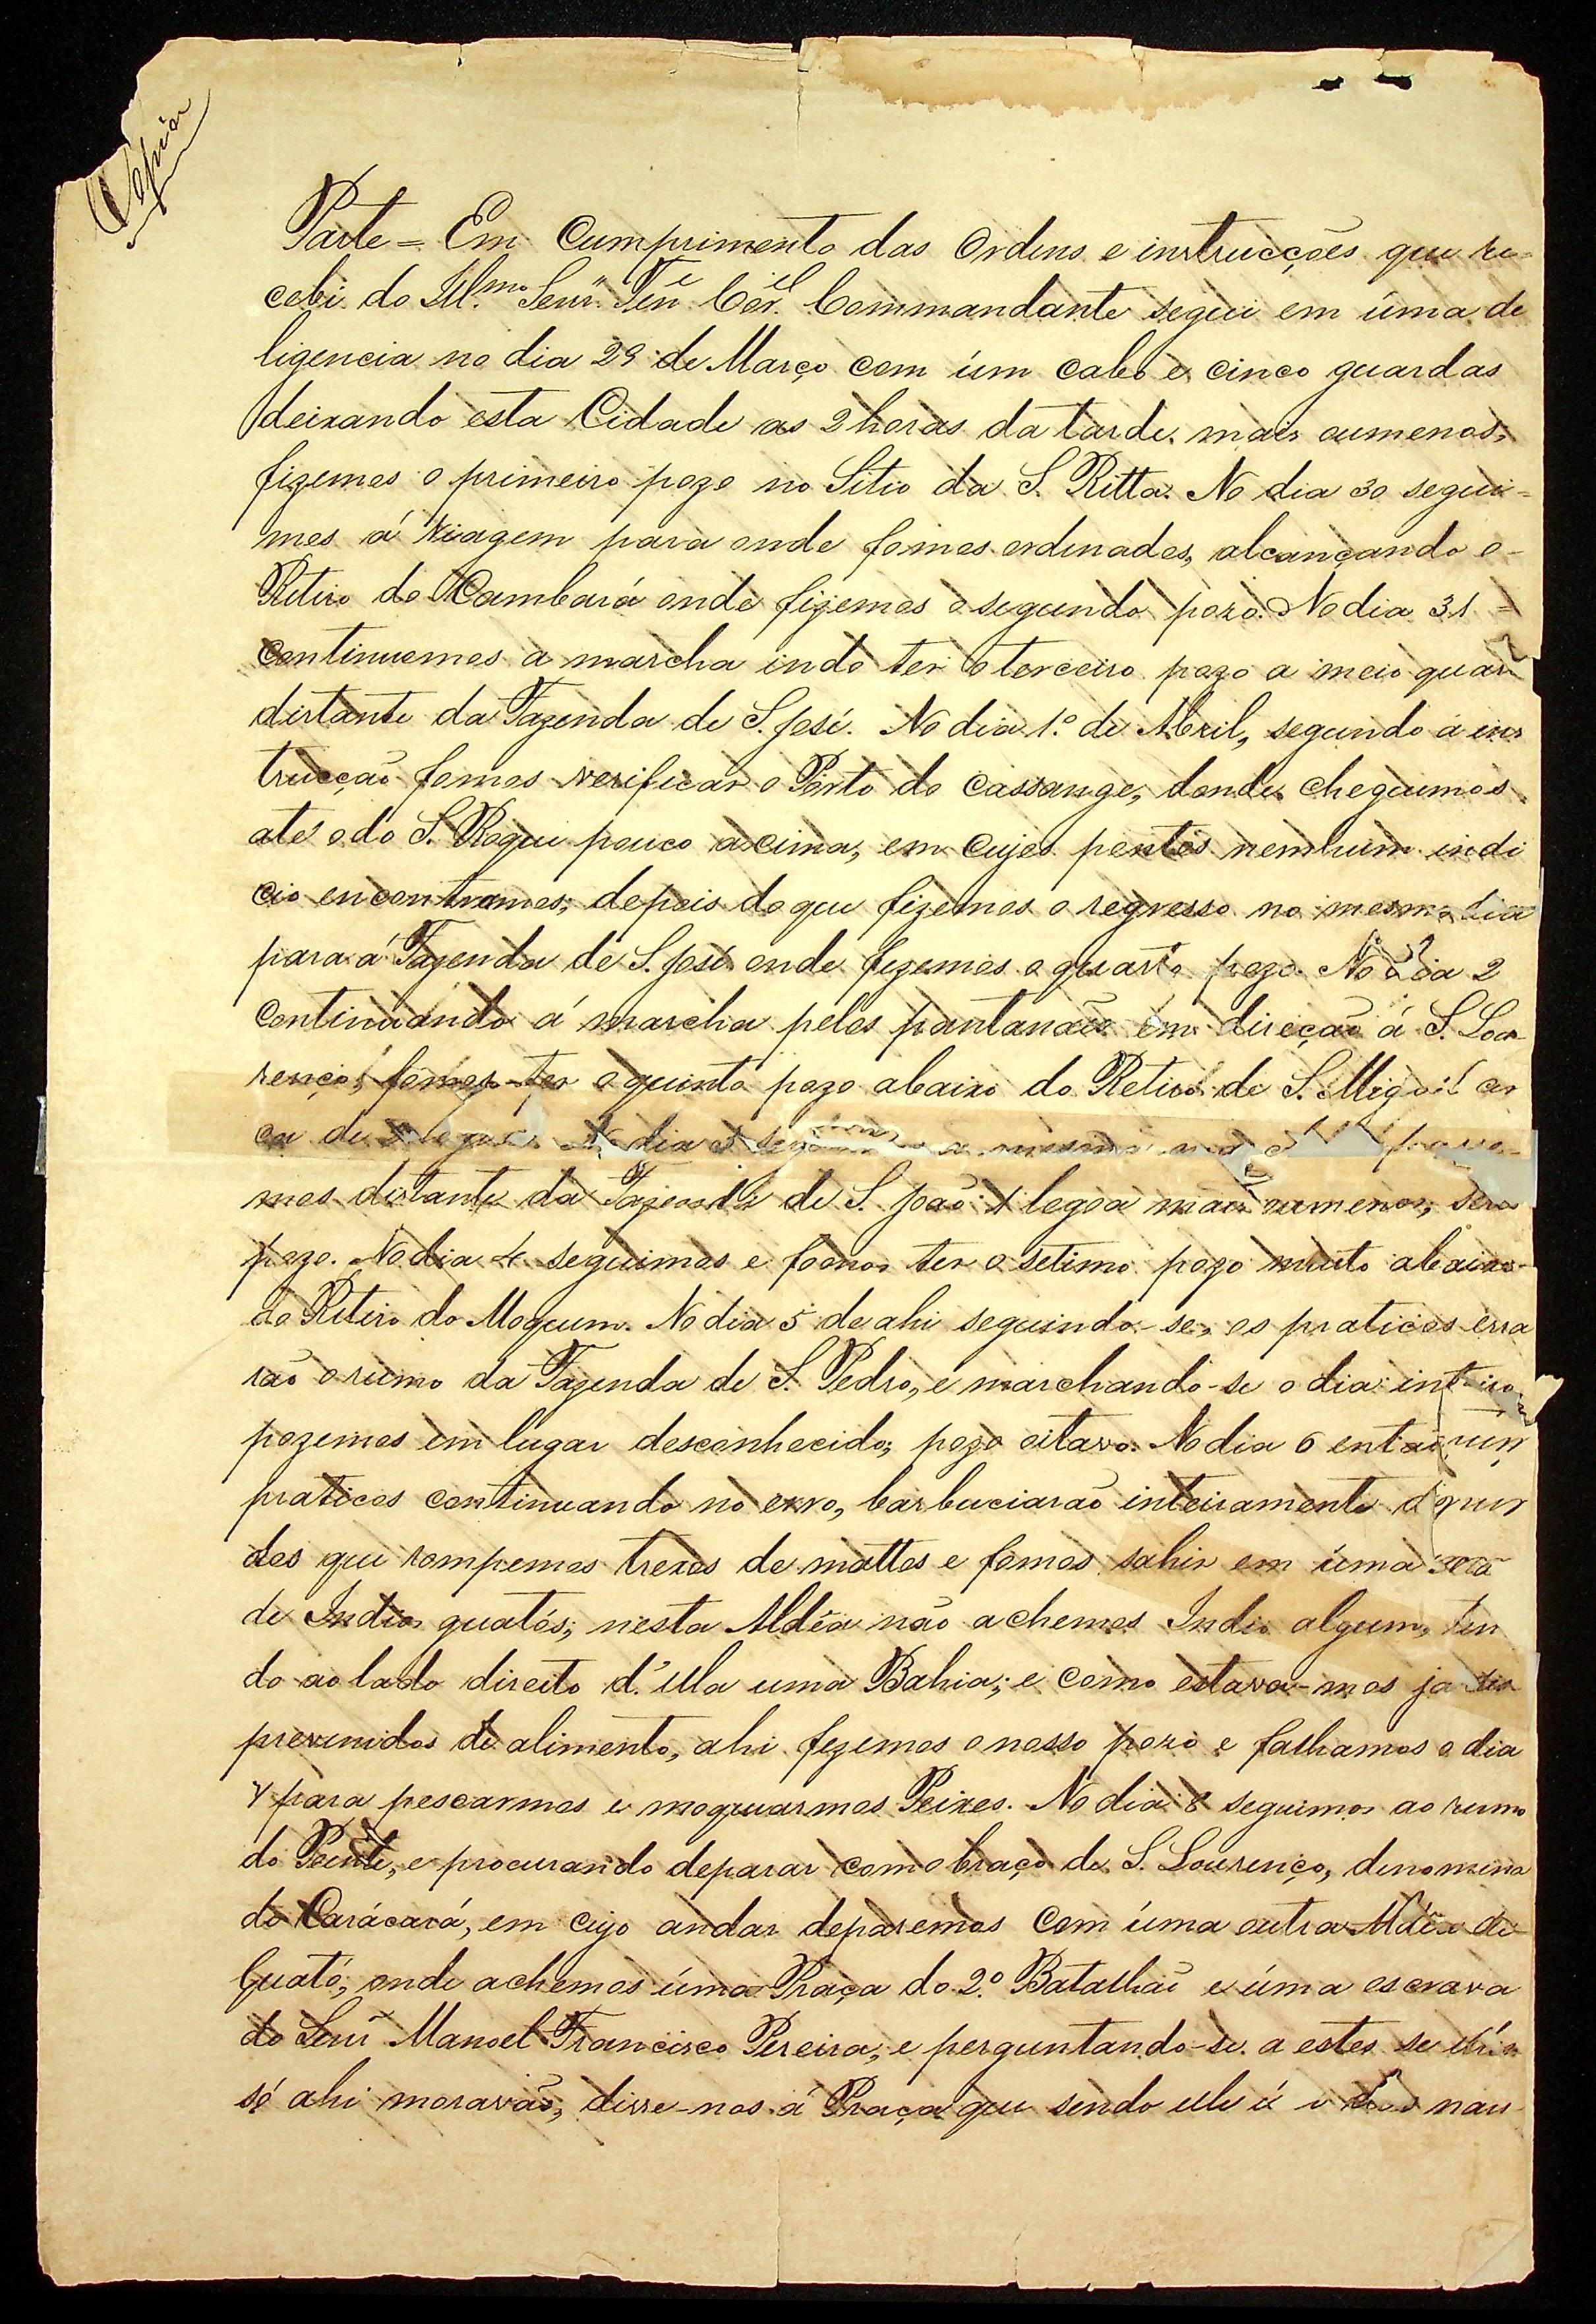 Copia
Parte = Em Cumprimento das Ordens e instrucções que re-
cebi do Ill.mo Senr. Ten.e Cor.el Commandante segui em úma de
ligencia no dia 29 de Março com úm cabo e cinco guardas
deixando esta Cidade as 2 horas da tarde. mais oumenos,
fizemos o primeiro pozo no Sitio da S. Ritta. No dia 30 segui-
mos á viagem para onde fomos ordinados, alcançando o
Retiro do Cambará onde fizemos o segundo pozo. No dia 31 =
continuemos a marcha indo ter o terceiro pozo a meio quar
distante da Fazenda de S. José. No dia 1.º de Abril, segundo a ins
trucção fomos verificar o Porto do Cassange, donde cheguimos
até o do S. Roque pouco acima, em cujos pontos nemhum indi
cio encontramos; depois do que fizemos o regresso no mesmo dia
para á Fazenda de S. José onde fizemos o quarto pozo. No dia 2
continuando á marcha pelos pantanães em direção á S. Lou
renço, fomos ter o quinto pozo abaixo do Retiro de S. Miguel cer
ca de dia 3 a mesma
mos distante da Fazenda de S. João 1 legoa mais oumenos, sexto
pozo. No dia 4 seguimos e fomos ter o setimo pozo muito abaixo
do Retiro do Moquum. No dia 5 de ahi seguindo-se, os praticos erra
rão o rumo da Fazenda de S. Pedro, e marchando-se o dia inteiro
pozemos em lugar desconhecido, pozo oitavo. No dia 6 então
praticos continuando no erro, barbuciarão inteiramente
dos que rompemos trexos de mattos e fomos sahir em úma
de Indios guatós; nesta Aldêa não achemos Indio algum, ten
do ao lado direito d'ella uma Bahia; e como estava-mos ja des
prevenidos de alimento, ahi fizemos o nosso pozo e falhamos o dia
7 para pescarmos e moquiarmos Peixes. No dia 8 seguimos ao rumo
do Poente, e procurando deparar com o braço de S. Lourenço, denomina
do Carácará, em cujo andar deparemos Com úma outra Aldêa de
Guató; onde achemos úma Praça do 2.º Batalhão e úma escrava
do Senr Manoel Francisco Pereira; e perguntando-se a estes se elles
só ahi moravão, disse-nos á Praça que sendo elle nau